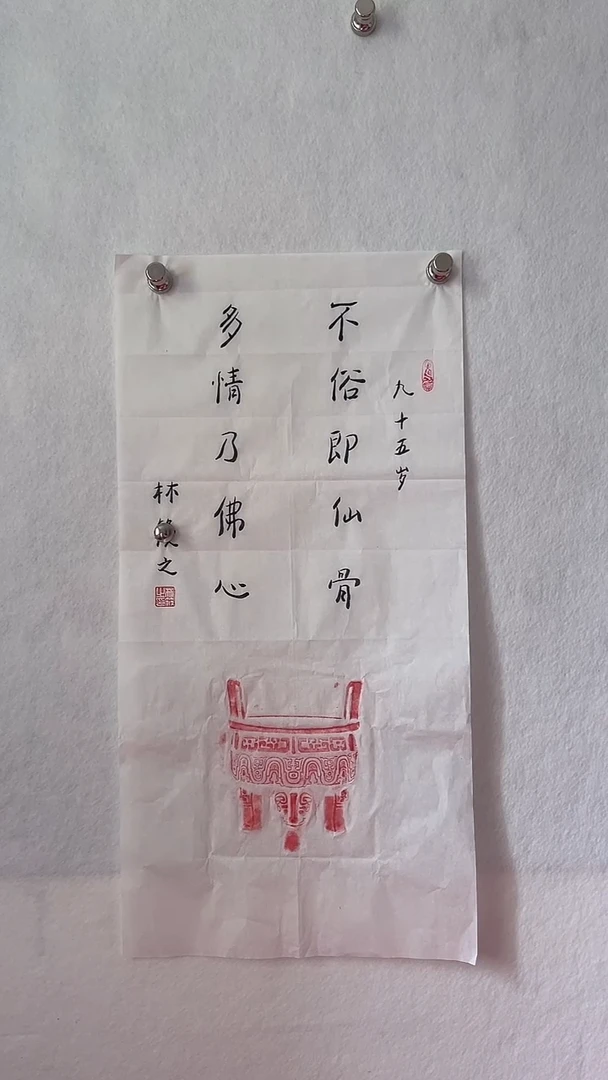 九十五岁
不俗即仙骨
多情乃佛心
林筱之